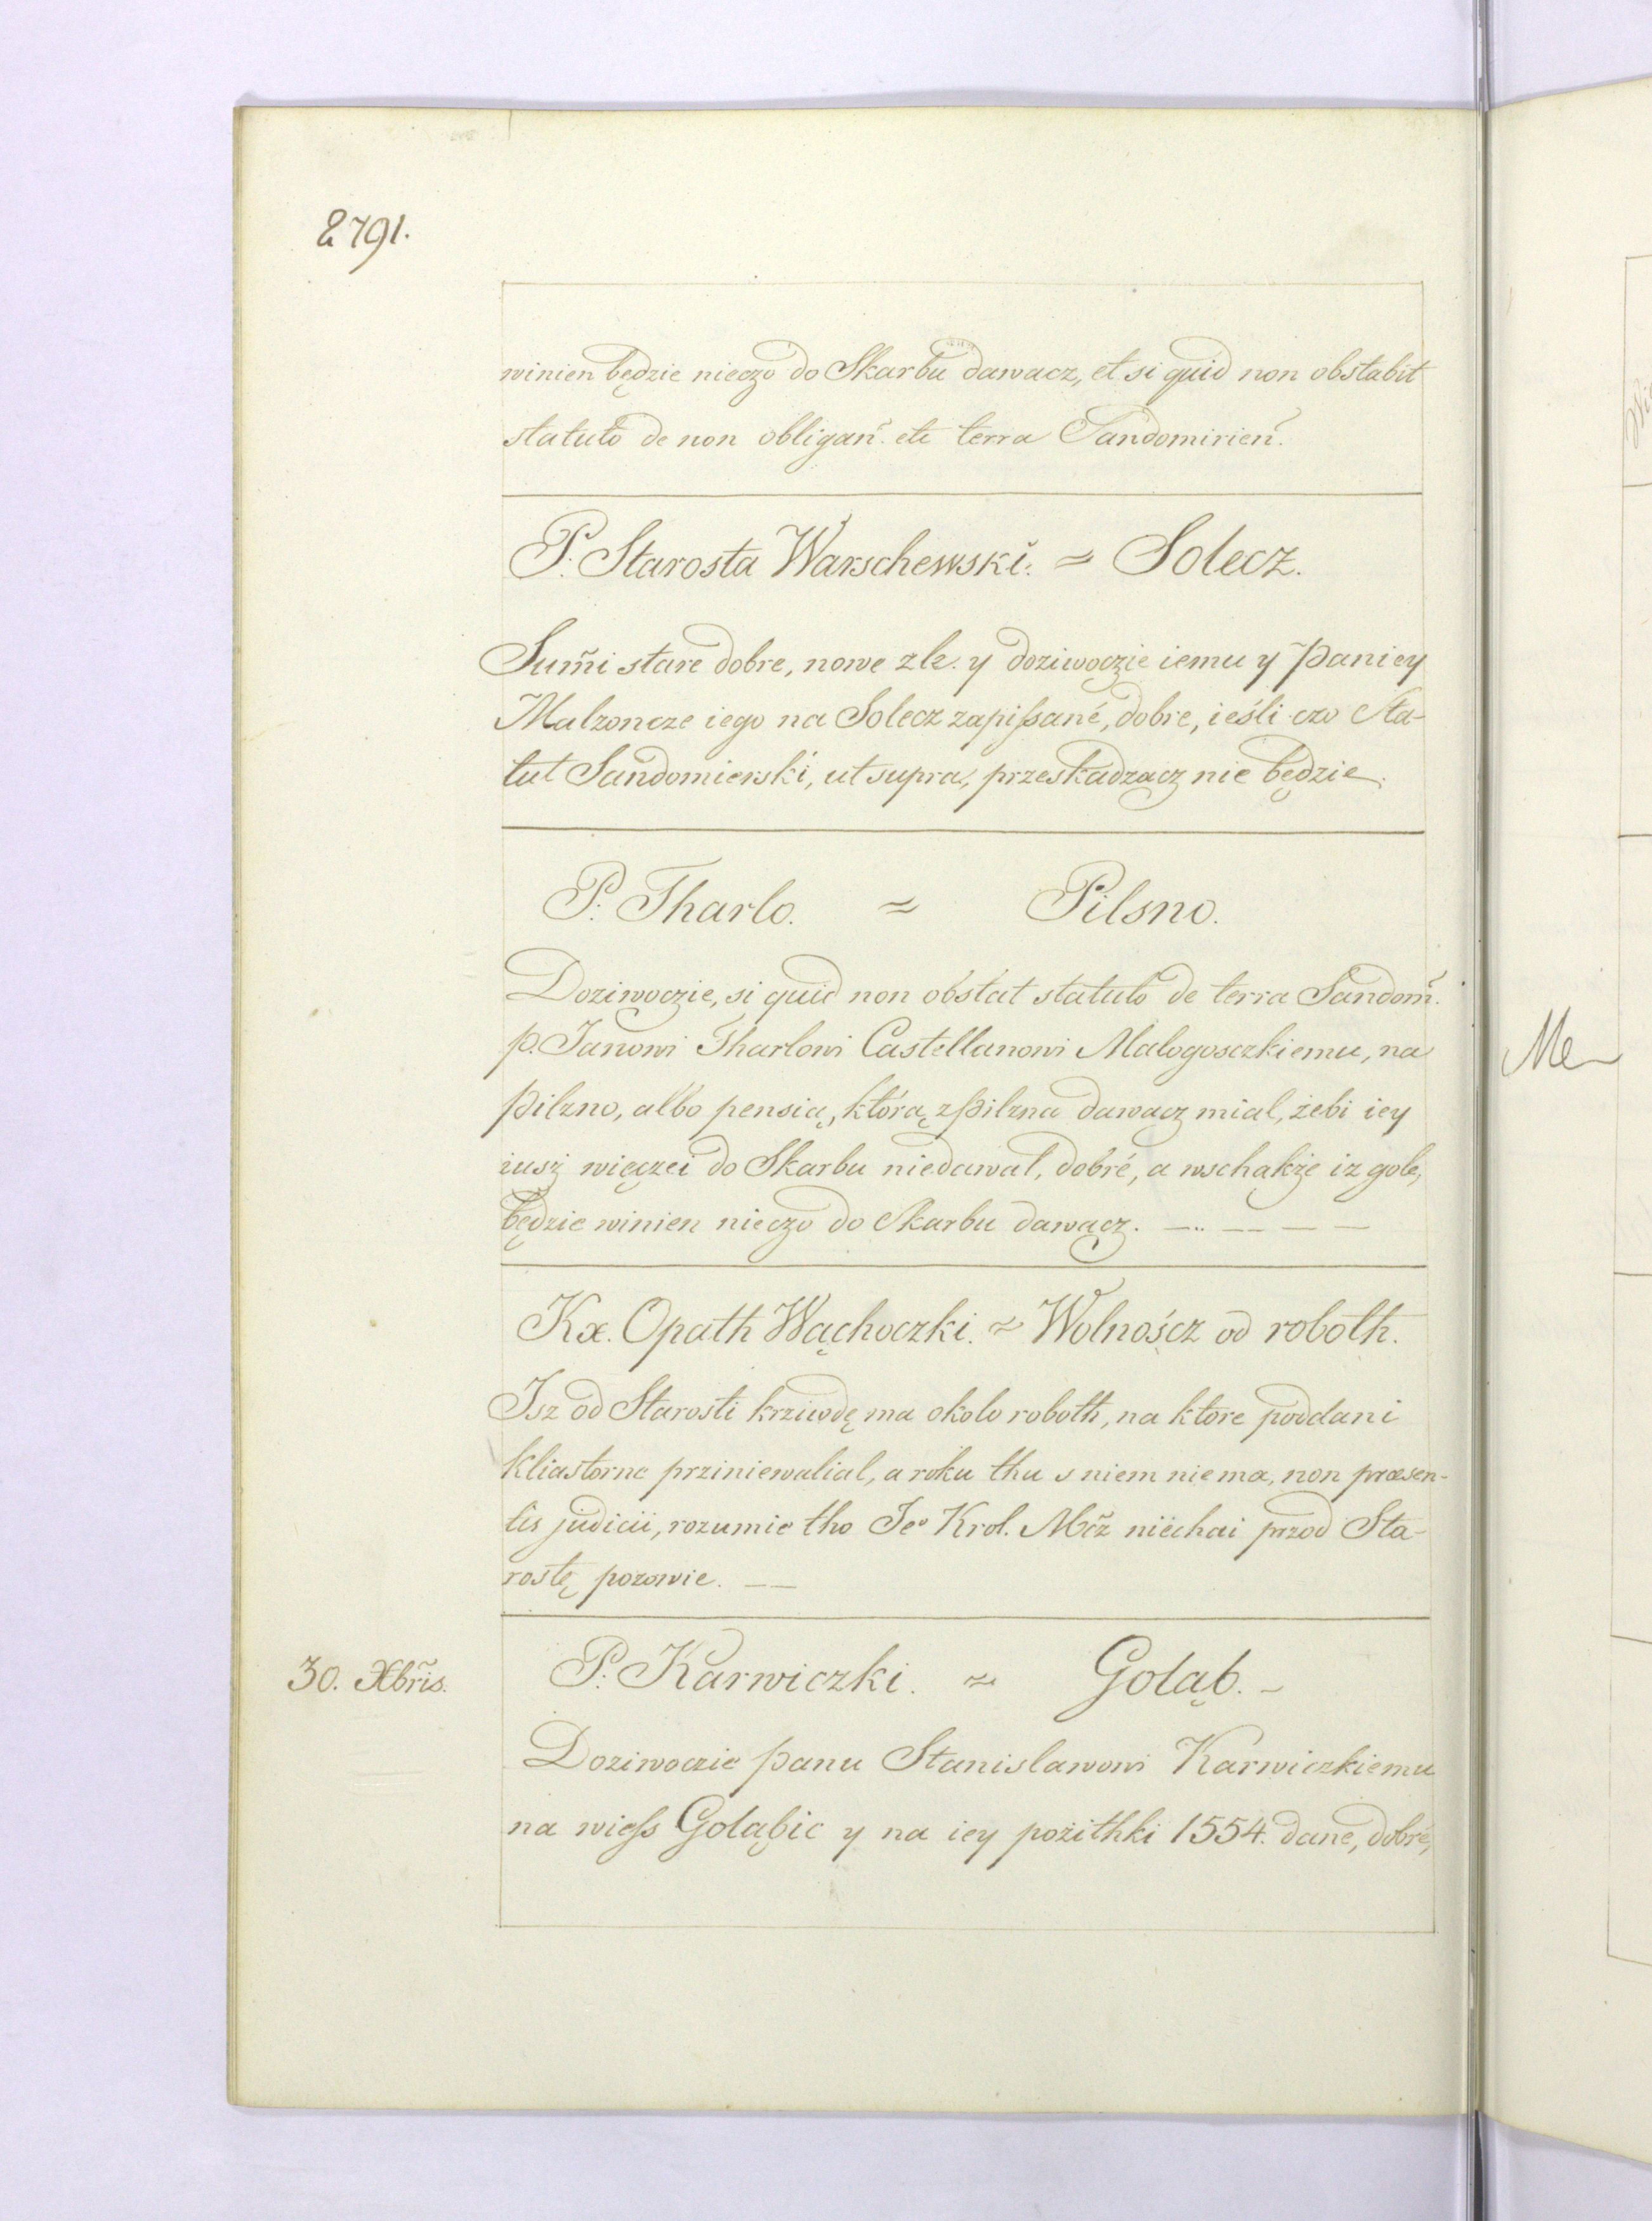 2791.
winien będzie nieczo do Skarbu dawacz, et si quid non obstabit
statuto de non obligań. etc terra Sandomirień.
P. Starosta Warschewski. = Solecz.
Sum̃i stare dobre, nowe zle. y doziwoczie iemu y Paniey
Malzoncze iego na Solecz zapißané, dobre, ieśli czo Sta-
tut Sandomierski, ut supra, przeskadzacz nie będzie.
P. Tharlo. = Pilsno.
Doziwoczie, si quid non obstat statuto de terra Sandom̃.
p. Janowi Tharlowi Castellanowi Malogosczkiemu, na
Pilzno, albo pensią, którą z Pilzna dawacz mial, żebi iey
iusz więczei do Skarbu niedawal, dobré, a wschakże iz gole,
będzie winien nieczo do Skarbu dawącz. — .. — — —
Kx. Opath Wąchoczki. ~ Wolnoścz od roboth.
Isz od Starosti krziwdę ma okolo roboth, na ktore poddani
kliastorne prziniewalial, a roku thu s niem nie ma, non præsen-
tis judicii, rozumie tho Jeº Krol. Mc̃z niechai przod Sta-
rostę pozowie. —
30. Xbr̃is.
P. Karwiczki. ~ Goląb. -
Doziwoczie Panu Stanislawowi Karwiczkiemu
na wieß Goląbie y na iey pożithki 1554. dane, dobré,
Me